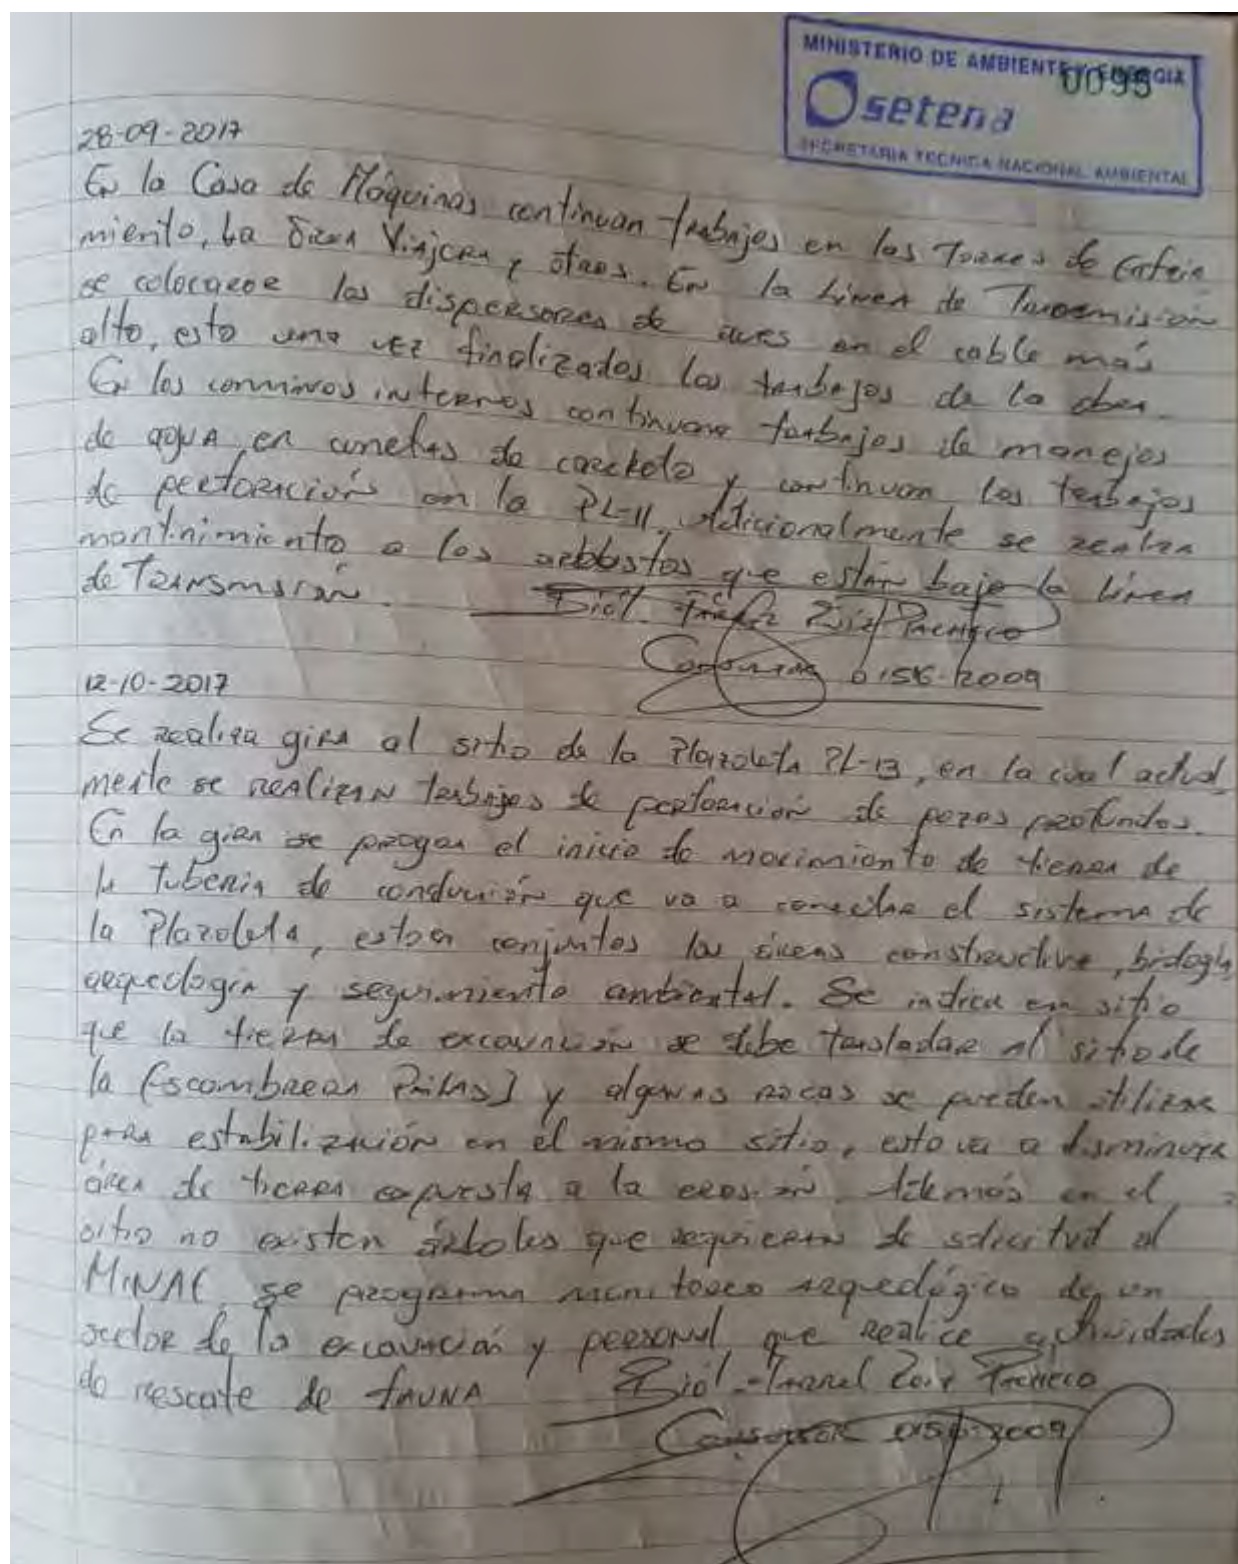 MINISTERIO DE AMBIENTE Y ENERGIA
0095
setena
SECRETARIA TECNICA NACIONAL AMBIENTAL
28-09-2017
En la Casa de Máquinas continuan trabajos en las Torres de Enfria
miento, La Grua Viajera y otros. En la Linea de Transmisión
se colocaron los dispersores de aves en el cable más
alto, esto una vez finalizados los trabajos de la obra.
En los caminos internos continuan trabajos de manejos
de agua, en cunetas de concreto y continuan los trabajos
de perforación en la PL-11, Adicionalmente se realiza
mantinimiento a los arbustos que están bajo la Linea
de Transmisión.
Biol. Pacheco
Consultor 0156-2009
12-10-2017
Se realiza gira al sitio de la Plazoleta PL-13, en la cual actual
mente se realizan trabajos de perforación de pozos profundos.
En la gira se progra el inicio de movimiento de tierra de
la tuberia de conducción que va a conectar el sistema de
la Plazoleta, estan conjuntos las áreas constructiva, biología,
arqueologia y seguimiento ambiental. Se indica en sitio
que la tierra de excavación se debe trasladar al sitio de
la (Escombrera Pailas) y algunas rocas se pueden utilizar
para estabilización en el mismo sitio, esto va a disminuir
área de tierra expuesta a la erosión. Además en el
sitio no existen árboles que requieran de solicitud al
MINAE, se programa monitoreo arqueológico de un
sector de la excavación y personal que realice actividades
de rescate de fauna
Biol. Pacheco
Consultor 0156-2009